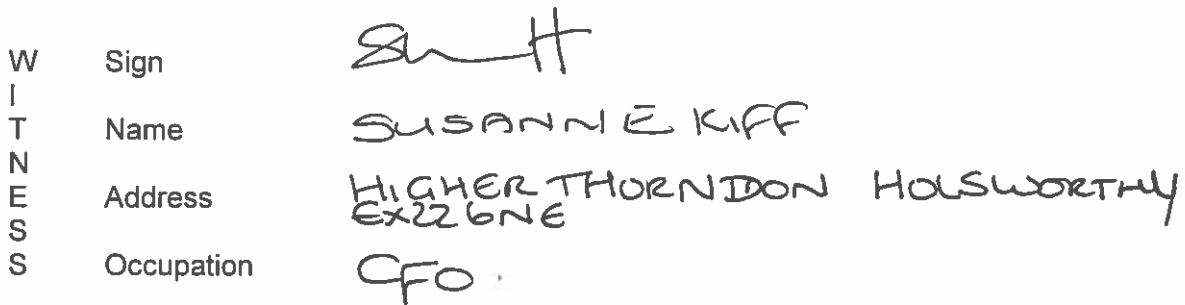 WITNESS
Sign
Name SUSANNE KIFF
Address HIGHER THORNDON HOLSWORTHY
EX22 6NE
Occupation CFO.